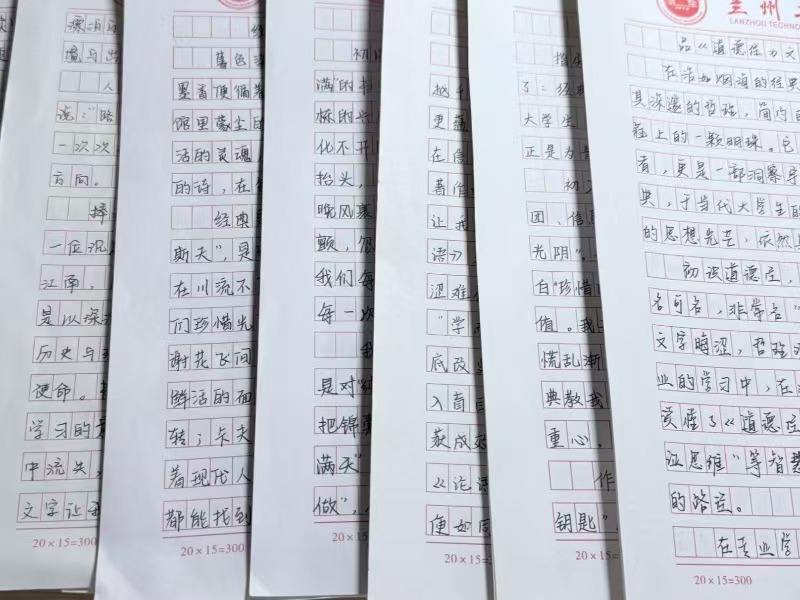 深泪
境与出
人
说："路
一次次
方同。
择
一位沉
江南，
是以深
历史与
使命。
学习的
中流失
文字让我
20×15=300
暮色
墨香便循着
馆里蒙尘的
活的灵魂
的诗，在
经典
斯夫"，是
在川流不
们珍惜光
谢花飞间
鲜活的面
转；卡夫
着现代人
都能找到
20×15=300
初
满"的
标的
化不开
抬头，
晚风裹
颤，忽
我们每
每一次
我
是对"
把锦
满天"
做"，
更
在
著
让我
语》
涩难
"学
底改
入盲目
获成
《论语
便如同
20×15=300
指
了：经典
大学生
正是为
初入
团、信息
光阴"。
白"珍惜
值。我
慌乱渐
典教我
重心。
作
钥匙"
兰州
LANZHOU TECHNO
品《道德经》文
在浩如烟海的经典
其深邃的哲理，简约
冠上的一颗明珠。它
看，更是一部洞察宇
典，于当代大学生的
的思想光芒，依然
初识道德经，
名可名，非常名"
文字晦涩，哲理
业的学习中，在
读懂了《道德经
证思维"等智慧
的路径。
在专业学
20×15=300